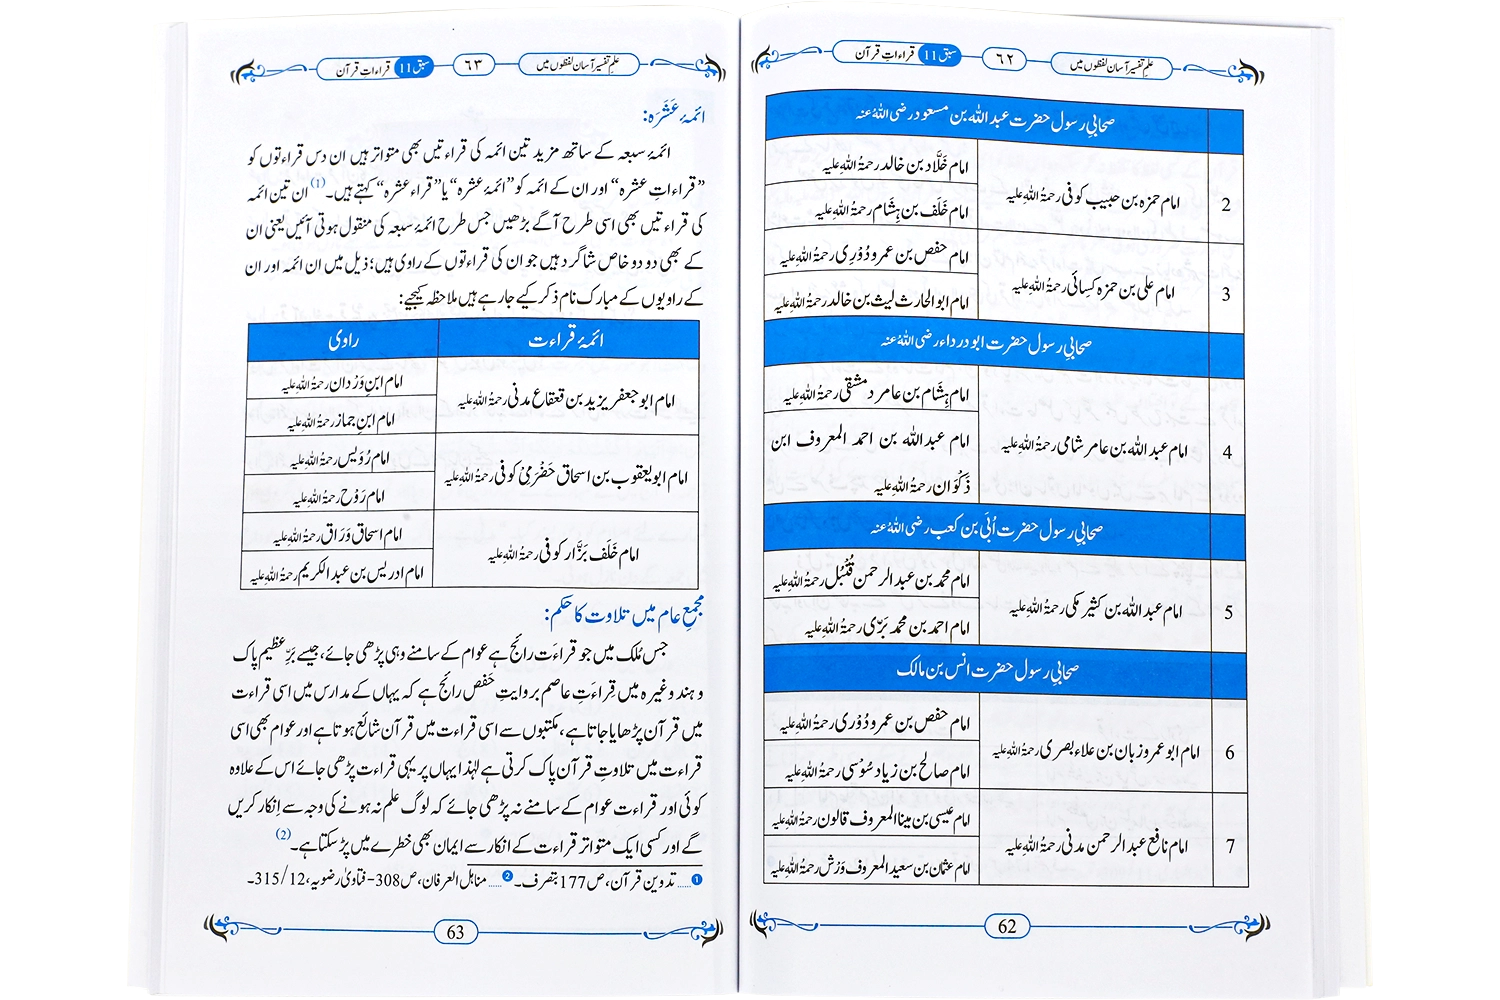 علمِ تفسیر آسان لفظوں میں
٦٢
سبق 11
قراءاتِ قرآن
صحابیِ رسول حضرت عبد اللہ بن مسعود رضی اللہُ عنہ
2
امام حمزہ بن حبیب کوفی رحمۃُ اللہِ علیہ
امام خَلَّاد بن خالد رحمۃُ اللہِ علیہ
امام خَلَف بن ہِشَام رحمۃُ اللہِ علیہ
3
امام علی بن حمزہ کِسائی رحمۃُ اللہِ علیہ
امام حفص بن عمرو دُوْرِی رحمۃُ اللہِ علیہ
امام ابو الحارث لیث بن خالد رحمۃُ اللہِ علیہ
صحابیِ رسول حضرت ابو درداء رضی اللہُ عنہ
4
امام عبد اللہ بن عامر شامی رحمۃُ اللہِ علیہ
امام ہِشَام بن عامر دمشقی رحمۃُ اللہِ علیہ
امام عبد اللہ بن احمد المعروف ابن
ذَکْوَان رحمۃُ اللہِ علیہ
صحابیِ رسول حضرت اُبَی بن کعب رضی اللہُ عنہ
5
امام عبد اللہ بن کثیر مکی رحمۃُ اللہِ علیہ
امام محمد بن عبد الرحمن قُنْبُل رحمۃُ اللہِ علیہ
امام احمد بن محمد بَزّی رحمۃُ اللہِ علیہ
صحابیِ رسول حضرت انس بن مالک
6
امام ابو عمرو زبان بن علاء بصری رحمۃُ اللہِ علیہ
امام حفص بن عمرو دُوْرِی رحمۃُ اللہِ علیہ
امام صالح بن زیاد سُوْسی رحمۃُ اللہِ علیہ
7
امام نافع عبد الرحمن مدنی رحمۃُ اللہِ علیہ
امام عیسی بن مینا المعروف قالون رحمۃُ اللہِ علیہ
امام عثمان بن سعید المعروف وَرْش رحمۃُ اللہِ علیہ
62
علمِ تفسیر آسان لفظوں میں
٦٣
سبق 11
قراءاتِ قرآن
ائمۂ عَشَرَہ:
ائمۂ سبعہ کے ساتھ مزید تین ائمہ کی قراءتیں بھی متواتر ہیں ان دس قراءتوں کو
”قراءاتِ عشرہ“ اور ان کے ائمہ کو ”ائمۂ عشرہ“ یا ”قراء عشرہ“ کہتے ہیں۔(1) ان تین ائمہ
کی قراءتیں بھی اسی طرح آگے بڑھیں جس طرح ائمۂ سبعہ کی منقول ہوتی آئیں یعنی ان
کے بھی دو دو خاص شاگرد ہیں جو ان کی قراءتوں کے راوی ہیں؛ ذیل میں ان ائمہ اور ان
کے راویوں کے مبارک نام ذکر کیے جارہے ہیں ملاحظہ کیجیے:
ائمۂ قراءت
راوی
امام ابو جعفر یزید بن قعقاع مدنی رحمۃُ اللہِ علیہ
امام ابنِ وَرْدان رحمۃُ اللہِ علیہ
امام ابنِ جماز رحمۃُ اللہِ علیہ
امام ابو یعقوب بن اسحاق حَضْرَمِیْ کوفی رحمۃُ اللہِ علیہ
امام رُوَیس رحمۃُ اللہِ علیہ
امام رَوْح رحمۃُ اللہِ علیہ
امام خَلَف بَزَّار کوفی رحمۃُ اللہِ علیہ
امام اسحاق وَرَاق رحمۃُ اللہِ علیہ
امام ادریس بن عبد الکریم رحمۃُ اللہِ علیہ
مجمعِ عام میں تلاوت کا حکم:
جس مُلک میں جو قراءَت رائج ہے عوام کے سامنے وہی پڑھی جائے، جیسے بَرِّ عظیم پاک
و ہند وغیرہ میں قِراءَتِ عاصم بروایتِ حَفص رائج ہے کہ یہاں کے مدارس میں اسی قراءت
میں قرآن پڑھایا جاتا ہے، مکتبوں سے اسی قراءت میں قرآن شائع ہوتا ہے اور عوام بھی اسی
قراءت میں تلاوتِ قرآن پاک کرتی ہے لہٰذا یہاں پر یہی قراءت پڑھی جائے اس کے علاوہ
کوئی اور قراءت عوام کے سامنے نہ پڑھی جائے کہ لوگ علم نہ ہونے کی وجہ سے اِنکار کریں
گے اور کسی ایک متواتر قراءت کے انکار سے ایمان بھی خطرے میں پڑ سکتا ہے۔(2)
1 ..... تدوین قرآن، ص177 بتصرف۔ 2 ..... مناہل العرفان، ص308- فتاویٰ رضویہ، 12/315۔
63